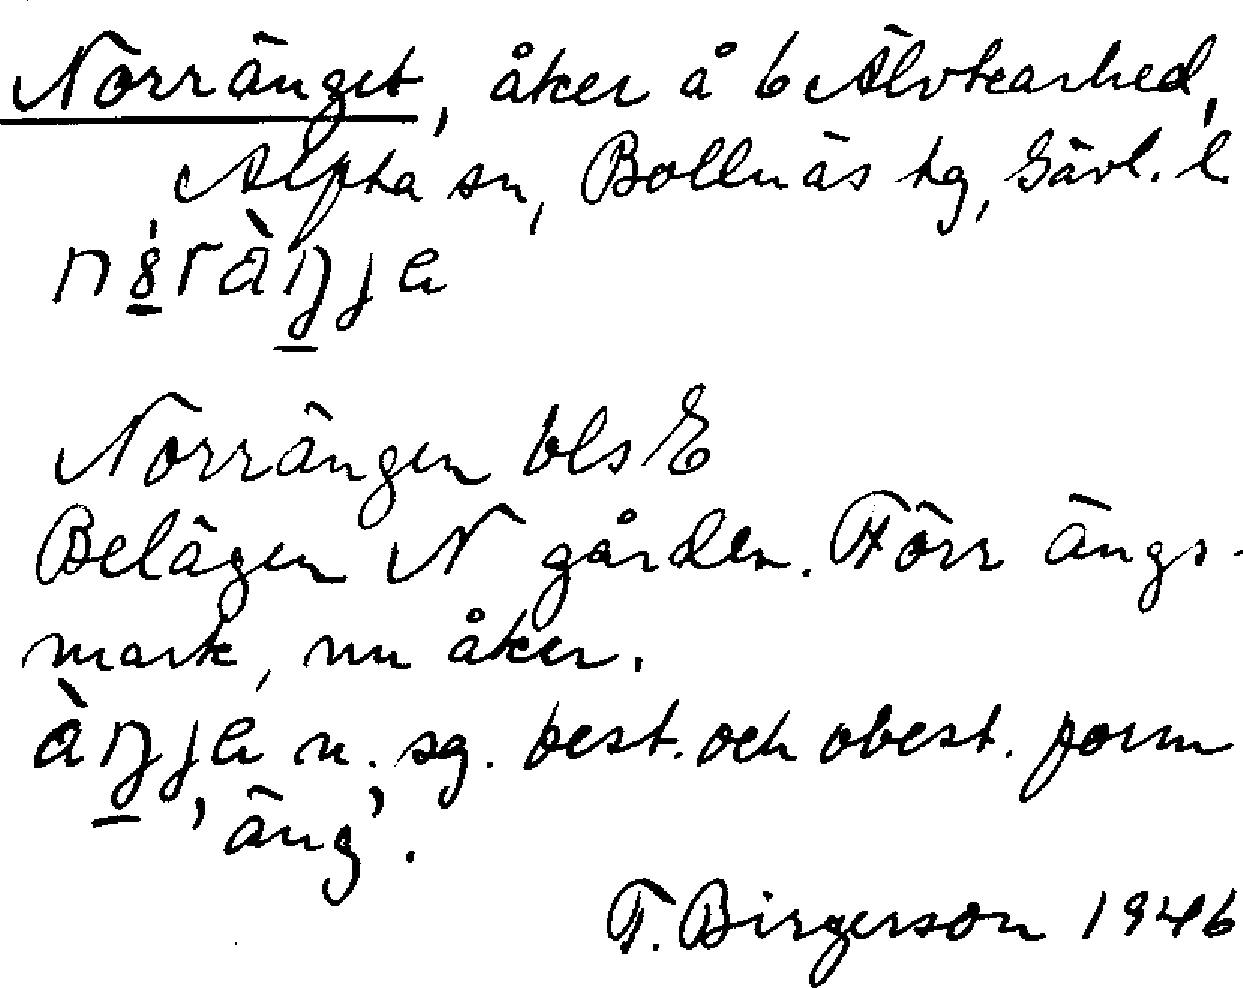 Norränget, åker å 6 Älvkarhed,
Alfta sn, Bollnäs hg, Gävl. l.
Norrängen bls E
Belägen N gården. Förr ängs-
mark, nu åker.
n. sg. best. och obest. form
'äng'.
F. Birgerson 1946